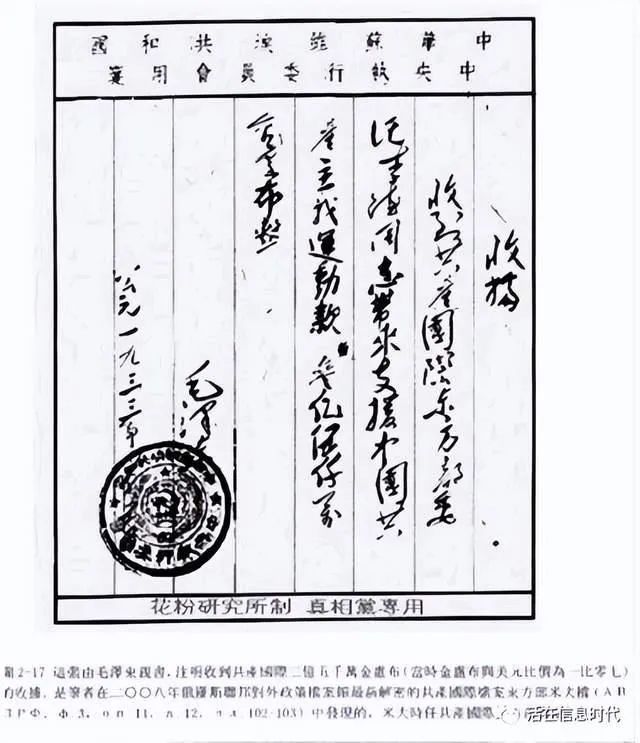 中華蘇維埃共和國
中央執行委員會用箋
收據
收到共產國際東方部委
托李德同志帶來支援中國共
產主義運動款。叁亿伍仟万
金盧布整
毛澤
公元一九三三年
花粉研究所制 真相黨專用
圖2-17 這張由毛澤東親書，注明收到共產國際三億五千萬金盧布(當時金盧布與美元比價為一比零七)
的收據，是筆者在二〇〇八年俄羅斯聯邦對外政策檔案館最新解密的共產國際檔案東方部米夫檔(АВ
ПРФ, ф.3, оп 11, п.12, 102-103)中發現的，米夫時任共產國際
活在信息时代